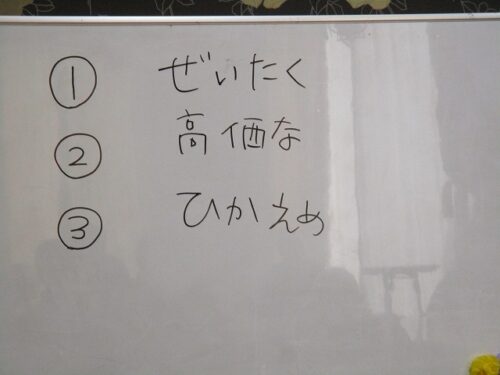 ① ぜいたく
② 高価な
③ ひかえめ